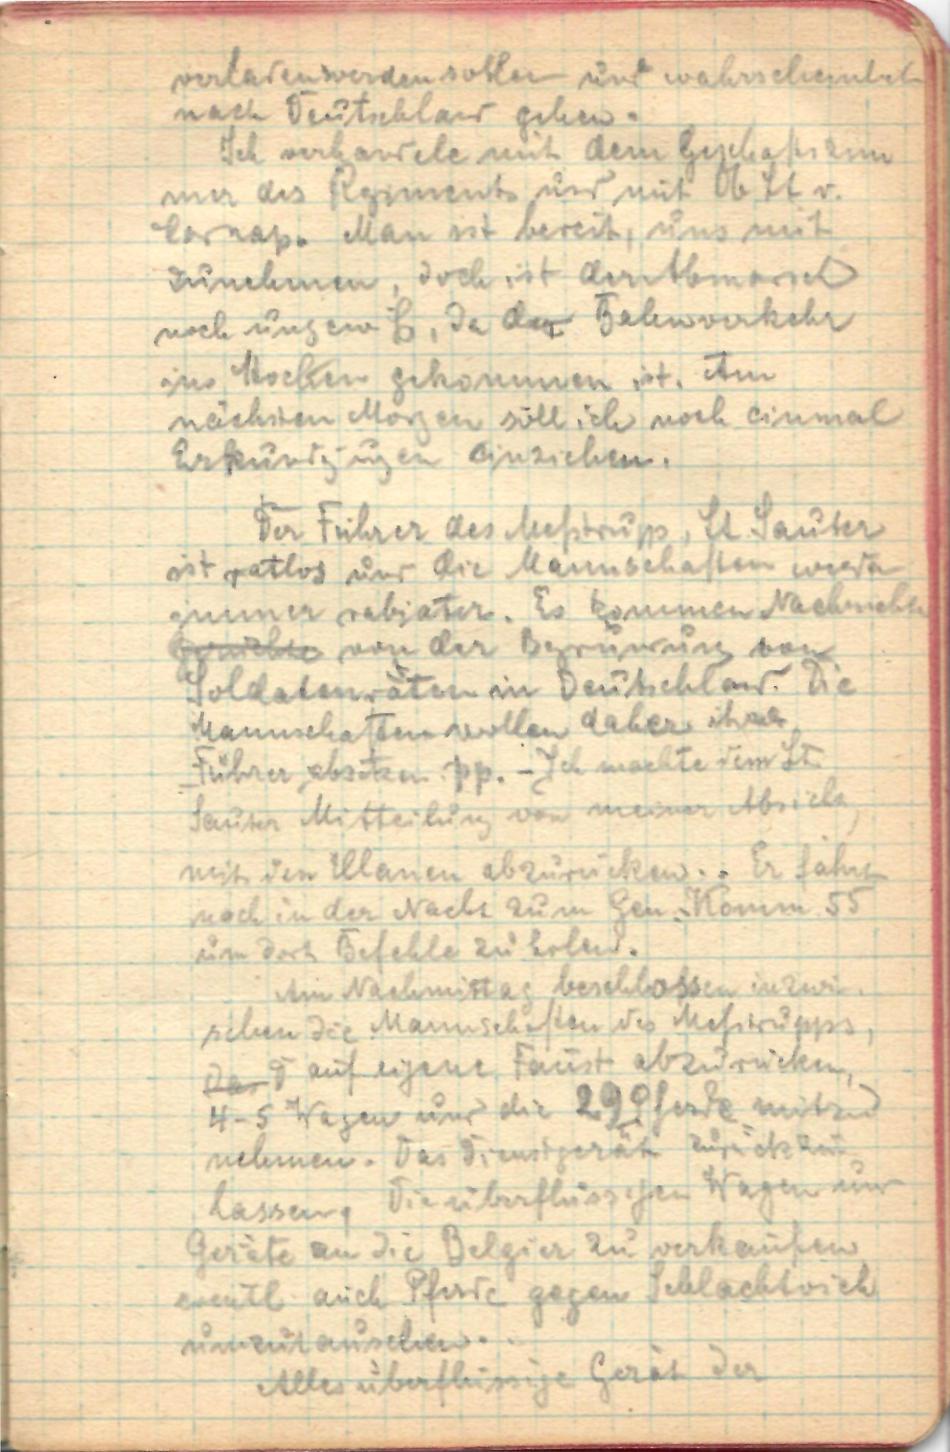 verladen werden sollen und wahrscheinlich
nach Deutschland gehen.
Ich verhandele mit dem Geschäftszim
mer des Regiments und mit Ob Lt v.
Carnap. Man ist bereit, uns mit
zunehmen, doch ist der Abmarsch
noch ungewiß, da der Bahnverkehr
ins Stocken gekommen ist. Am
nächsten Morgen soll ich noch einmal
Erkundigungen einziehen.
Der Führer des Meßtrupp, Lt. Sauter
ist ratlos und die Mannschaften werden
immer rabiater. Es kommen Nachrichten
Gerüchte von der Begründung von
Soldatenräten in Deutschland. Die
Mannschaften wollen daher ihren
Führer absetzen pp. – Ich machte dem Lt.
Sauter Mitteilung von meiner Absicht,
mit den Ulanen abzurücken. Er fährt
noch in der Nacht zum Gen. Komm 55
um dort Befehle zu holen.
Am Nachmittag beschlossen inzwi
schen die Mannschaften des Meßtrupps,
auf eigene Faust abzurücken,
4-5 Wagen und die 29 Pferde mitzu
nehmen. Das Dienstgerät zurückzu
lassen, die überflüssigen Wagen und
Geräte an die Belgier zu verkaufen
eventl auch Pferde gegen Schlachtvieh
umzutauschen.
Alles überflüssige Gerät der